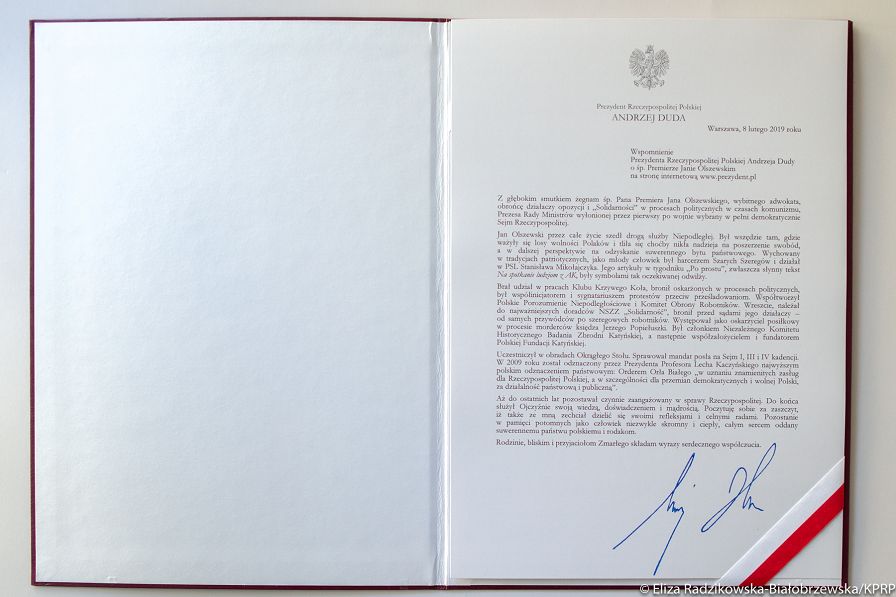 Prezydent Rzeczypospolitej Polskiej
ANDRZEJ DUDA
Warszawa, 8 lutego 2019 roku
Wspomnienie
Prezydenta Rzeczypospolitej Polskiej Andrzeja Dudy
o śp. Premierze Janie Olszewskim
na stronę internetową www.prezydent.pl
Z głębokim smutkiem żegnam śp. Pana Premiera Jana Olszewskiego, wybitnego adwokata,
obrońcę działaczy opozycji i „Solidarności” w procesach politycznych w czasach komunizmu,
Prezesa Rady Ministrów wyłonionej przez pierwszy po wojnie wybrany w pełni demokratycznie
Sejm Rzeczypospolitej.
Jan Olszewski przez całe życie szedł drogą służby Niepodległej. Był wszędzie tam, gdzie
ważyły się losy wolności Polaków i tliła się choćby nikła nadzieja na poszerzenie swobód,
a w dalszej perspektywie na odzyskanie suwerennego bytu państwowego. Wychowany
w tradycjach patriotycznych, jako młody człowiek był harcerzem Szarych Szeregów i działał
w PSL Stanisława Mikołajczyka. Jego artykuły w tygodniku „Po prostu”, zwłaszcza słynny tekst
Na spotkanie ludziom z AK, były symbolami tak oczekiwanej odwilży.
Brał udział w pracach Klubu Krzywego Koła, bronił oskarżonych w procesach politycznych,
był współinicjatorem i sygnatariuszem protestów przeciw prześladowaniom. Współtworzył
Polskie Porozumienie Niepodległościowe i Komitet Obrony Robotników. Wreszcie, należał
do najważniejszych doradców NSZZ „Solidarność”, bronił przed sądami jego działaczy –
od samych przywódców po szeregowych robotników. Występował jako oskarżyciel posiłkowy
w procesie morderców księdza Jerzego Popiełuszki. Był członkiem Niezależnego Komitetu
Historycznego Badania Zbrodni Katyńskiej, a następnie współzałożycielem i fundatorem
Polskiej Fundacji Katyńskiej.
Uczestniczył w obradach Okrągłego Stołu. Sprawował mandat posła na Sejm I, III i IV kadencji.
W 2009 roku został odznaczony przez Prezydenta Profesora Lecha Kaczyńskiego najwyższym
polskim odznaczeniem państwowym: Orderem Orła Białego „w uznaniu znamienitych zasług
dla Rzeczypospolitej Polskiej, a w szczególności dla przemian demokratycznych i wolnej Polski,
za działalność państwową i publiczną”.
Aż do ostatnich lat pozostawał czynnie zaangażowany w sprawy Rzeczypospolitej. Do końca
służył Ojczyźnie swoją wiedzą, doświadczeniem i mądrością. Poczytuję sobie za zaszczyt,
iż także ze mną zechciał dzielić się swoimi refleksjami i celnymi radami. Pozostanie
w pamięci potomnych jako człowiek niezwykle skromny i ciepły, całym sercem oddany
suwerennemu państwu polskiemu i rodakom.
Rodzinie, bliskim i przyjaciołom Zmarłego składam wyrazy serdecznego współczucia.
© Eliza Radzikowska-Białobrzewska/KPRP